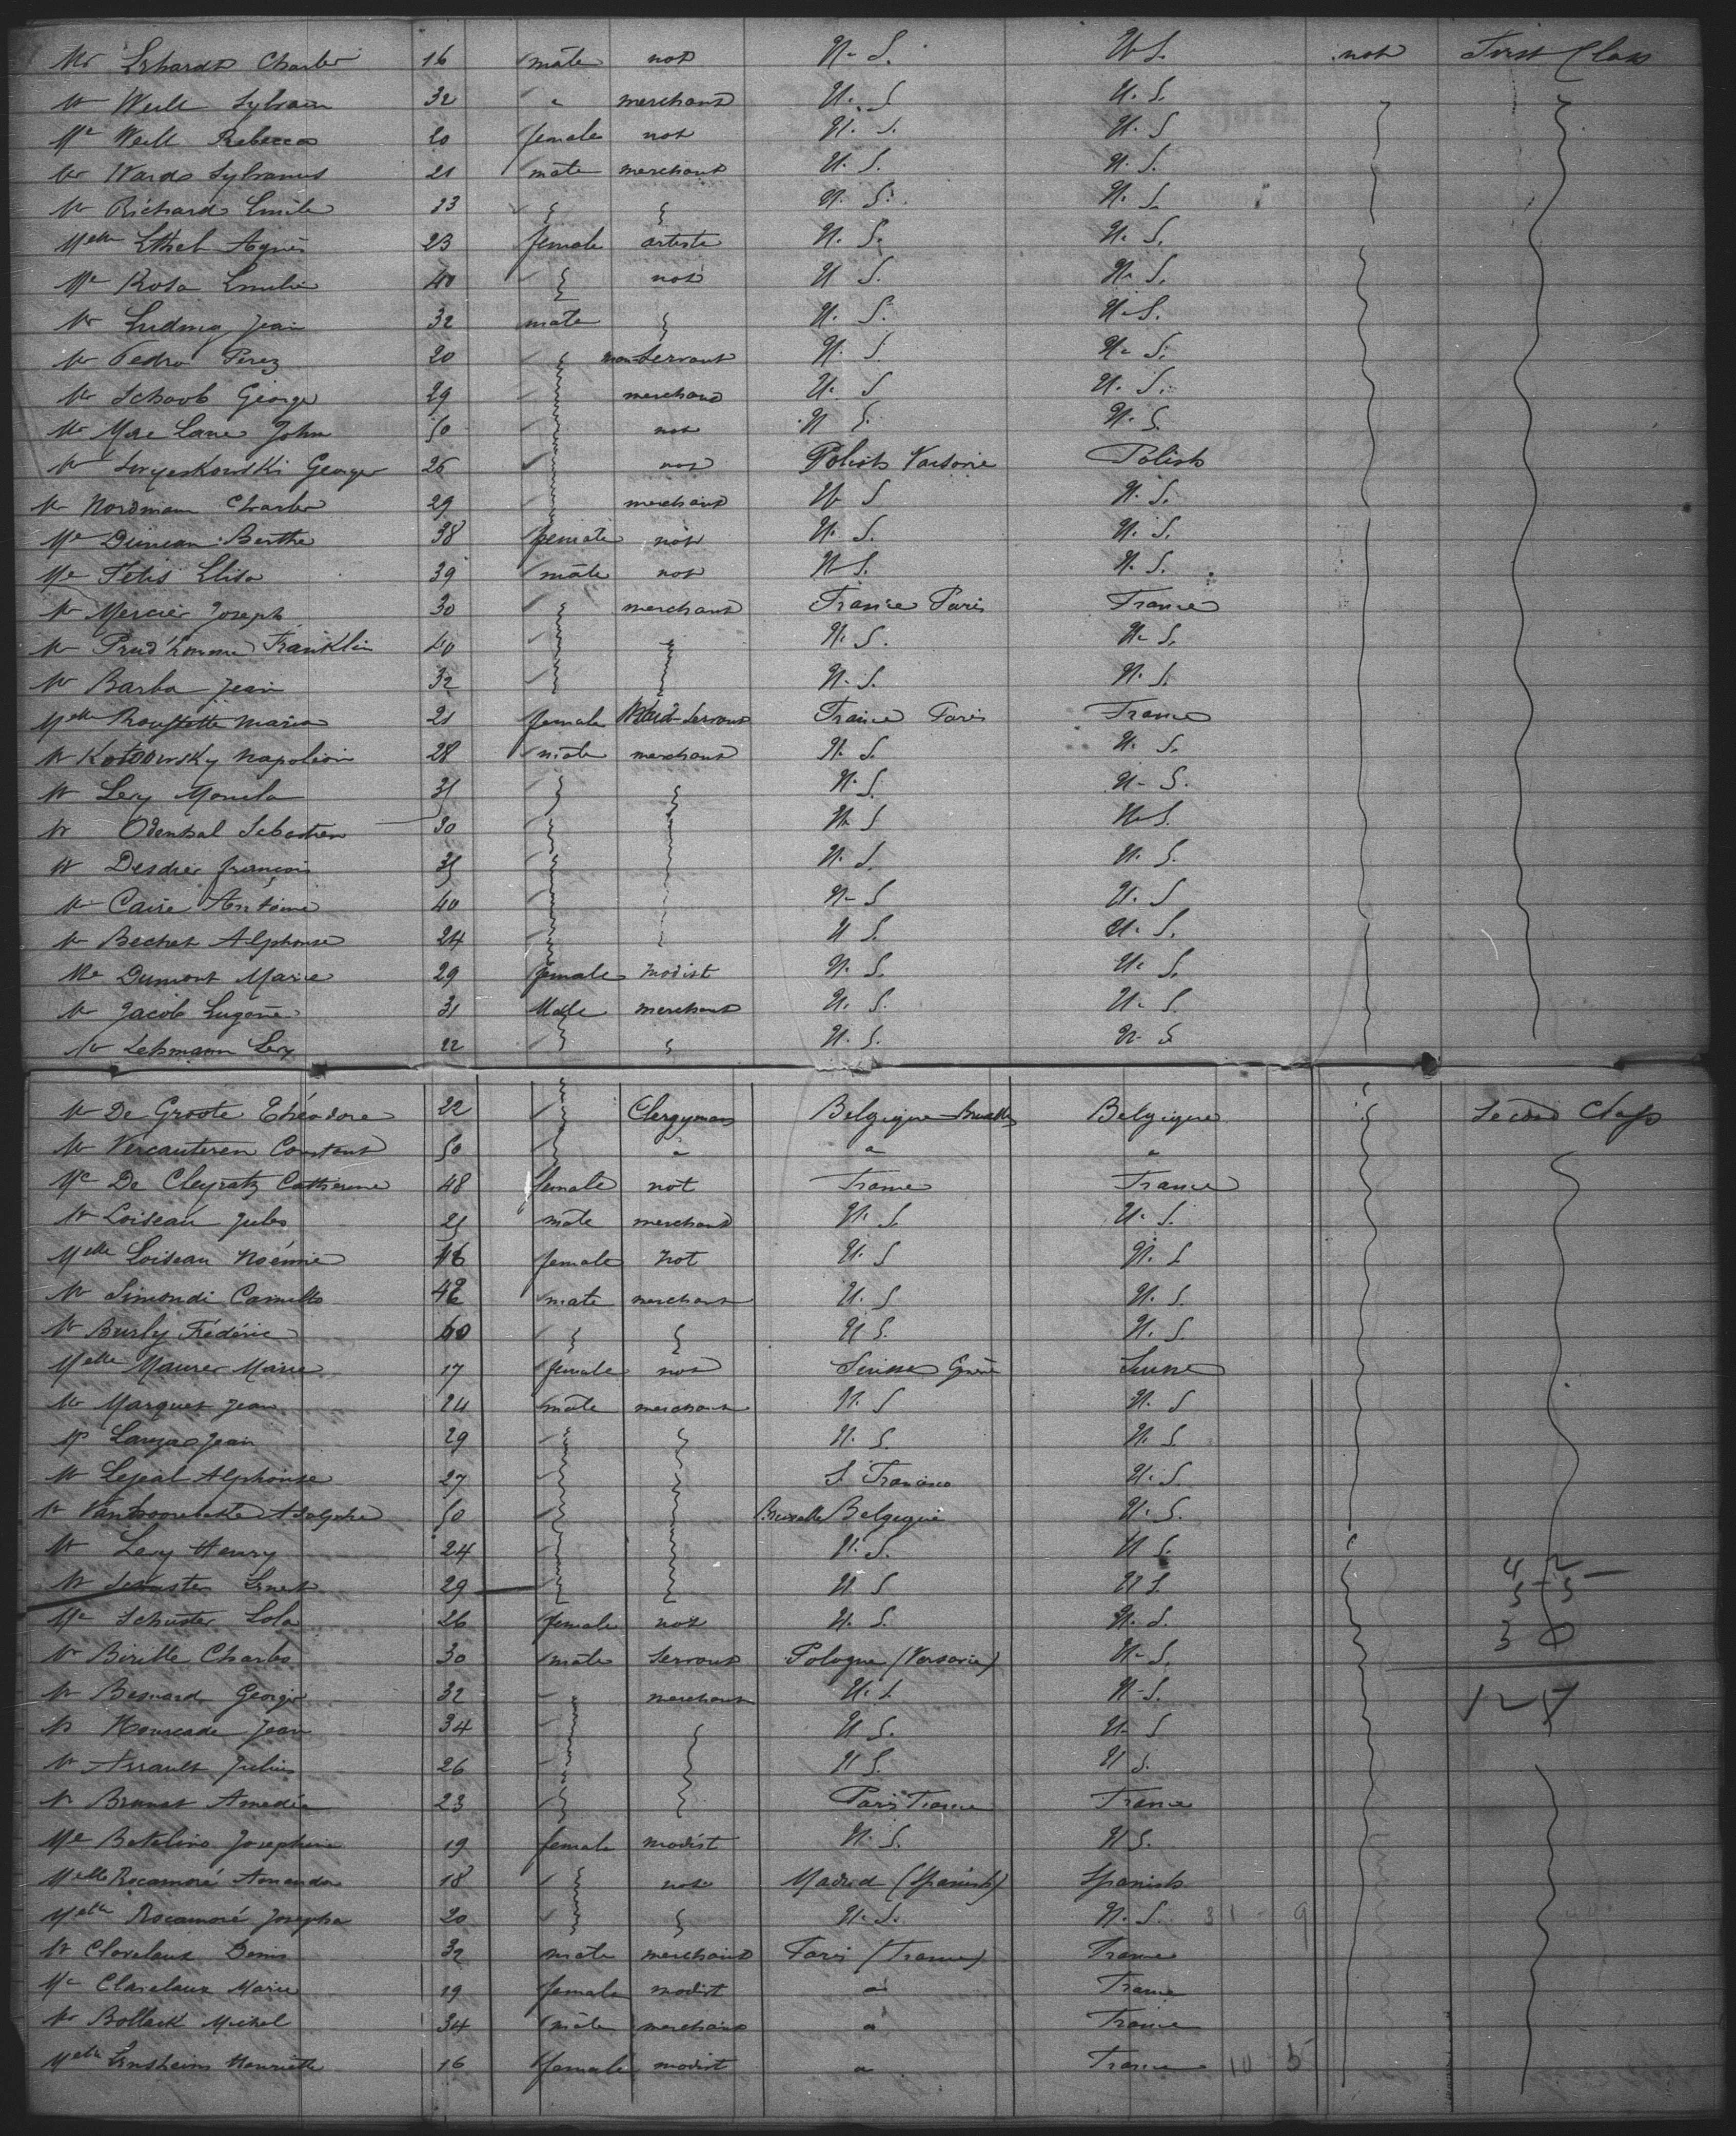 Mr Erhardt Charles 16 male not U. S. U. S. not First Class
Mr Weill Sylvain 32 " merchant U. S. U. S.
Me Weill Rebecca 20 female not U. S. U. S.
Mr Wards Sylvanus 21 male merchant U. S. U. S.
Mr Richard Emile 23 U. S. U. S.
Melle Ethel Agnès 23 female artiste U. S. U. S.
Me Rosa Emilie 40 not U. S. U. S.
Mr Ludwig Jean 32 male U. S. U. S.
Mr Pedro Perez 20 man Servant U. S. U. S.
Mr Schwob George 29 merchand U. S. U. S.
Mr Lane John 50 not U. S. U. S.
Mr George 26 not Polish Varsovie Polish
Mr Nordmann Charles 29 merchant U. S. U. S.
Me Duncan Berthe 38 female not U. S. U. S.
Me Fétis Elisa 39 male not U. S. U. S.
Mr Mercier Joseph 30 merchant France Paris France
Mr Prud'homme Franklin 40 U. S. U. S.
Mr Barba Jean 32 U. S. U. S.
Melle Maria 21 female Maid Servant France Paris France
Mr Napoléon 28 male merchant U. S. U. S.
Mr Levy 31 U. S. U. S.
Mr Odenthal Sebastien 30 U. S. U. S.
Mr Desdier françois 35 U. S. U. S.
Mr Caire Antoine 40 U. S. U. S.
Mr Bechet Alphonse 24 U. S. U. S.
Me Dumont Marie 29 female modist U. S. U. S.
Mr Jacob Eugène 31 Male merchant U. S. U. S.
Mr Lehmann Levy 22 U. S. U. S.
Mr De Groote Théodore 22 Clergyman Belgique Bruxelles Belgique Second Class
Mr Vercauteren Constant 50 " " "
Me De Cleyratz Catherine 48 female not France France
Mr Loiseau Jules 21 male merchand U. S. U. S.
Melle Loiseau Noémie 46 female not U. S. U. S.
Mr Simondi Camillo 42 male merchant U. S. U. S.
Mr Burly Frédéric 60 U. S. U. S.
Melle Maurer Marie 17 female not Suisse Genève Suisse
Mr Marquet Jean 24 male merchant U. S. U. S.
Mr Jean 29 U. S. U. S.
Mr Lejeal Alphonse 27 S. Francisco U. S.
Mr Adolphe 50 Bruxelles Belgique U. S.
Mr Levy Henry 24 U. S. U. S.
Mr Schuster Ernest 29 U. S. U. S.
Me Schuster Lola 26 female not U. S. U. S.
Mr Birette Charles 30 male Servant Pologne (Varsovie) U. S.
Mr Besnard George 32 merchant U. S. U. S.
Mr Hourcade Jean 34 U. S. U. S.
Mr Julius 26 U. S. U. S.
Mr Brunet Amedée 23 Paris France France
Me Batalino Josephine 19 female modist U. S. U. S.
Melle Rocamoré Amanda 18 not Madrid (Spanish) Spanish
Melle Rocamoré Josepha 20 U. S. U. S. 31 - 9
Mr Clavelaux Denis 32 male merchant Paris (France) France
Me Clavelaux Marie 19 female modist " France
Mr Bollack Michel 34 male merchant " France
Melle Einsheim Henriette 16 female modist " France 10 - 5